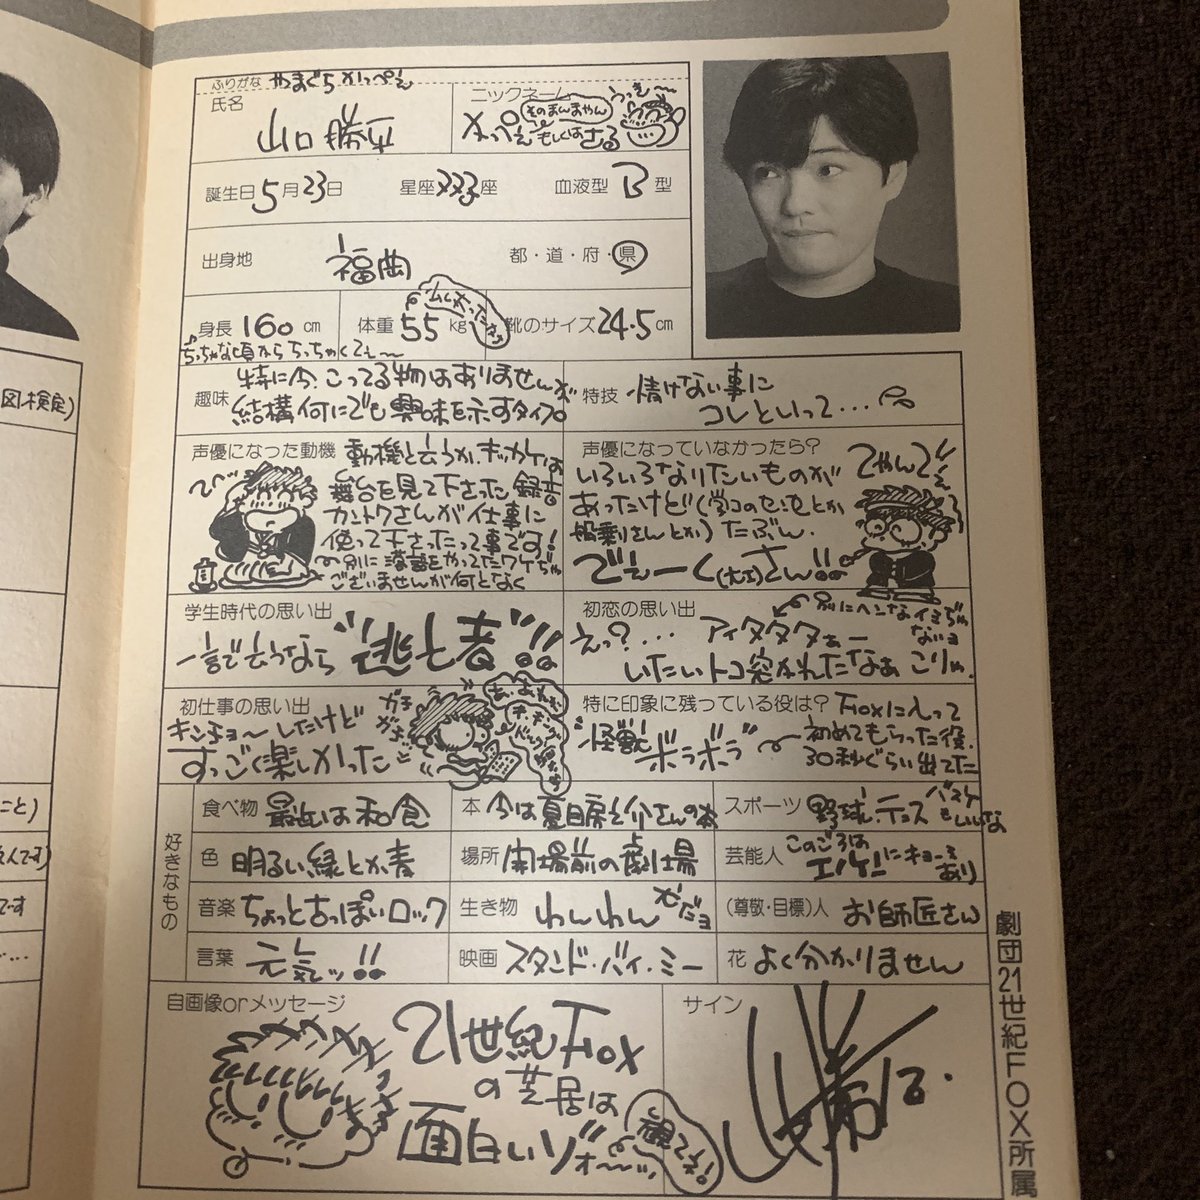 ふりがな やまぐち かっぺえ
氏名
山口勝平
ニックネーム
うっきー
そのまんまやん
かっぺえ もしくはさる
誕生日 5月23日
星座 双子座
血液型 B型
出身地 福岡 都・道・府・県
身長 160cm
ちっちゃな頃からちっちゃくてぇ〜
体重 55kg
靴のサイズ 24.5cm
趣味
特に今、こってる物はありませんが
結構何にでも興味を示すタイプ。
特技
情けない事に
コレといって・・・
声優になった動機
動機と云うか、キッカケは
舞台を見て下さった録音
カントクさんが仕事に
使って下さったって事です!
別に落語をやってたワケぢゃ
ございませんが何となく
声優になっていなかったら?
いろいろなりたいものが
あったけど(学コのセンセとか
船乗りさんとか)たぶん、
でぇーく(大工)さん!!
てやんでぃ
学生時代の思い出
一言で云うなら"逃亡者"!!
初恋の思い出
別にヘンなイミぢゃ
ないョ
えっ?・・・アイタタタァー
いたいトコ突かれたなぁ こりゃ。
初仕事の思い出
キンチョーしたけど
すっごく楽しかった
ガチ
ガチ
特に印象に残っている役は?
"怪獣ボラボラ"
Foxに入って
初めてもらった役。
30秒ぐらい出てた
好きなもの
食べ物 最近は和食
本 今は夏目房之介さんの本
スポーツ 野球、テニス バスケもいいな
色 明るい緑とか青
場所 開場前の劇場
芸能人 このごろは
エノケンにキョーミあり
音楽 ちょっと古っぽいロック
生き物 わんわん 犬だョ
(尊敬・目標)人 お師匠さん
言葉 元気ッ!!
映画 スタンド・バイ・ミー
花 よく分かりません
自画像orメッセージ
21世紀Fox
の芝居は
面白いゾォ〜ッ
観てネ!
サイン
劇団21世紀FOX所属
図検定)
こと)
です